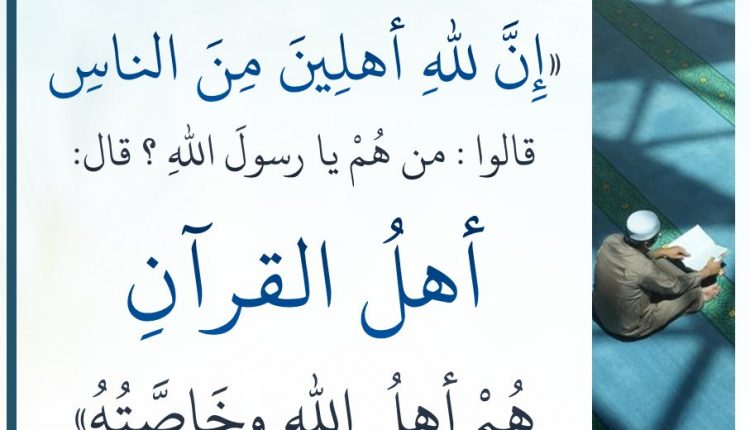 «إِنَّ للهِ أهلِينَ مِنَ الناسِ
قالوا : من هُمْ يا رسولَ اللهِ ؟ قال:
أهلُ القرآنِ
هُمْ أهلُ اللهِ وخَاصَّتُهُ»